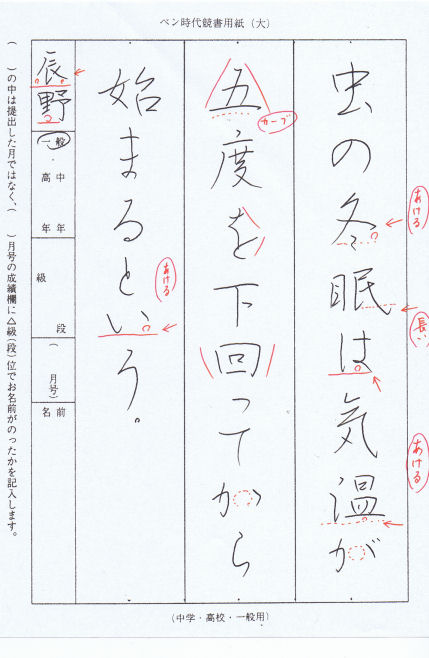 ペン時代競書用紙（大）
虫の冬眠は気温が
五度を下回ってから
始まるという。
あける
長い
あける
カーブ
あける
辰野
一般
高中
年年
級
段
（　月号）
名前
（　）の中は提出した月ではなく、（　）月号の成績欄に△級（段）位でお名前がのったかを記入します。
（中学・高校・一般用）